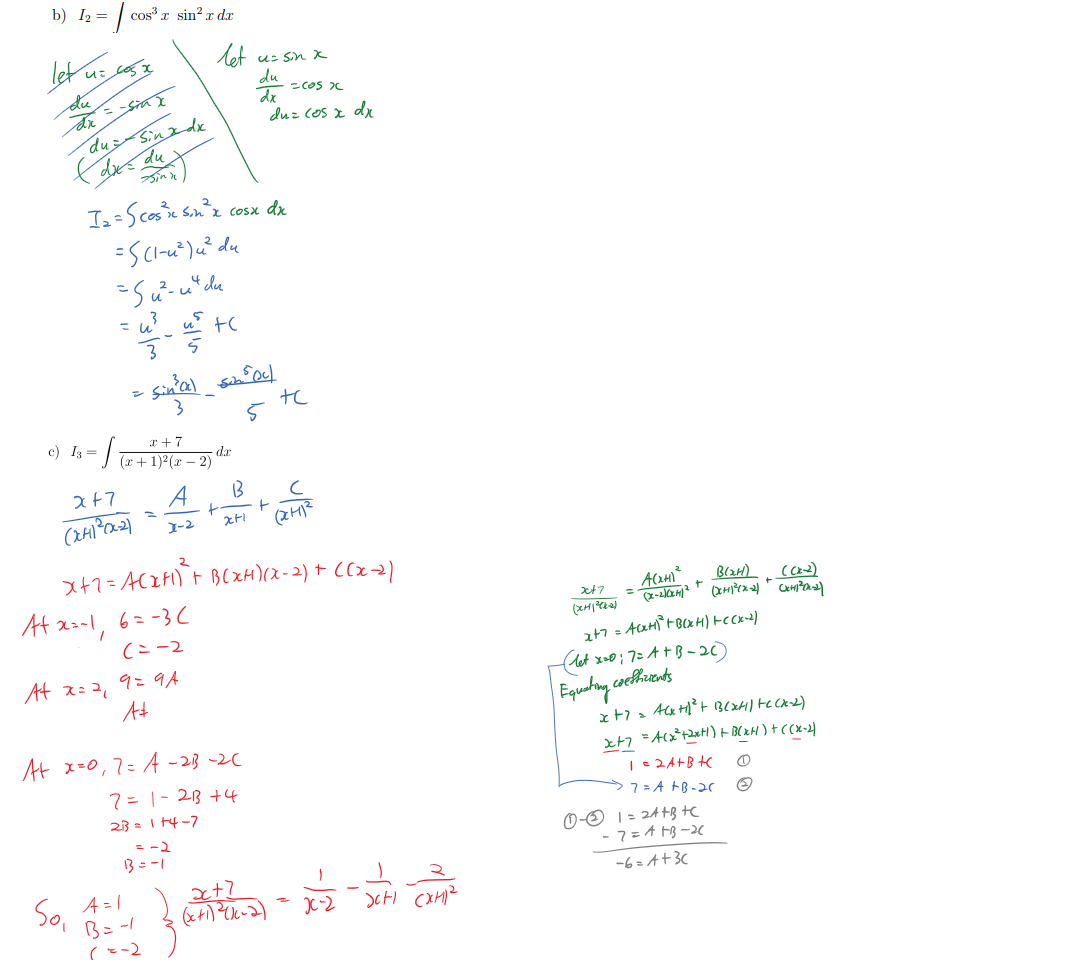 b) I₂ = ∫ cos³ x sin² x dx
let u = cos x
du/dx = -sin x
du = -sin x dx
(dx = du/-sin x)
let u = sin x
du/dx = cos x
du = cos x dx
I₂ = ∫ cos² x sin² x cos x dx
= ∫ (1-u²) u² du
= ∫ u² - u⁴ du
= u³/3 - u⁵/5 + C
= sin³(x)/3 - sin⁵(x)/5 + C
c) I₃ = ∫ (x + 7)/((x + 1)²(x − 2)) dx
(x+7)/((x+1)²(x-2)) = A/(x-2) + B/(x+1) + C/(x+1)²
x+7 = A(x+1)² + B(x+1)(x-2) + C(x-2)
At x=-1, 6 = -3C
C = -2
At x=2, 9 = 9A
A+
At x=0, 7 = A - 2B - 2C
7 = 1 - 2B + 4
2B = 1+4-7
= -2
B = -1
So, A=1
B = -1
C = -2
} (x+7)/((x+1)²(x-2)) = 1/(x-2) - 1/(x+1) - 2/(x+1)²
(x+7)/((x+1)²(x-2)) = A(x+1)²/((x-2)(x+1)²) + B(x+1)/((x+1)²(x-2)) + C(x-2)/((x+1)²(x-2))
x+7 = A(x+1)² + B(x+1) + C(x-2)
(let x=0; 7 = A + B - 2C)
Equating coefficients
x+7 = A(x+1)² + B(x+1) + C(x-2)
x+7 = A(x²+2x+1) + B(x+1) + C(x-2)
1 = 2A+B+C ①
7 = A+B-2C ②
①-② 1 = 2A+B+C
- 7 = A+B-2C
-6 = A+3C